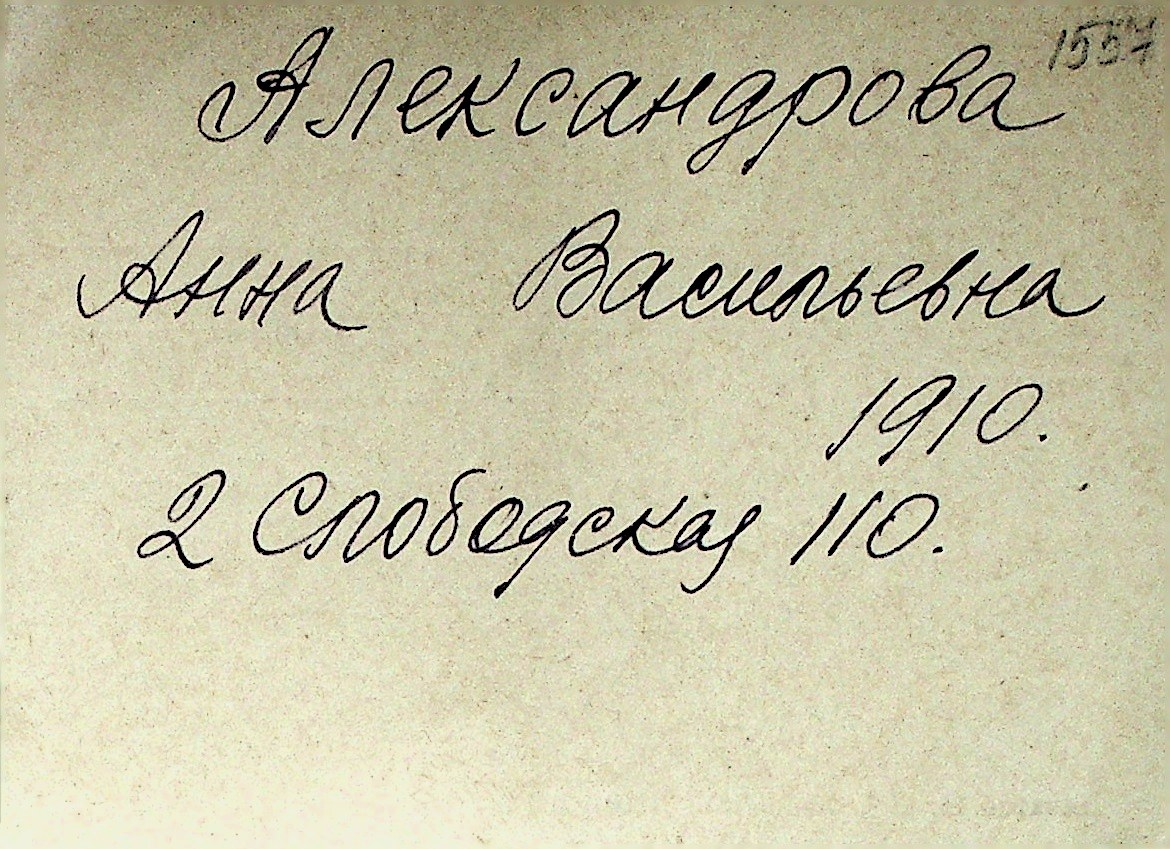 1557
Александрова
Анна Васильевна
1910.
2 Слободская 110.